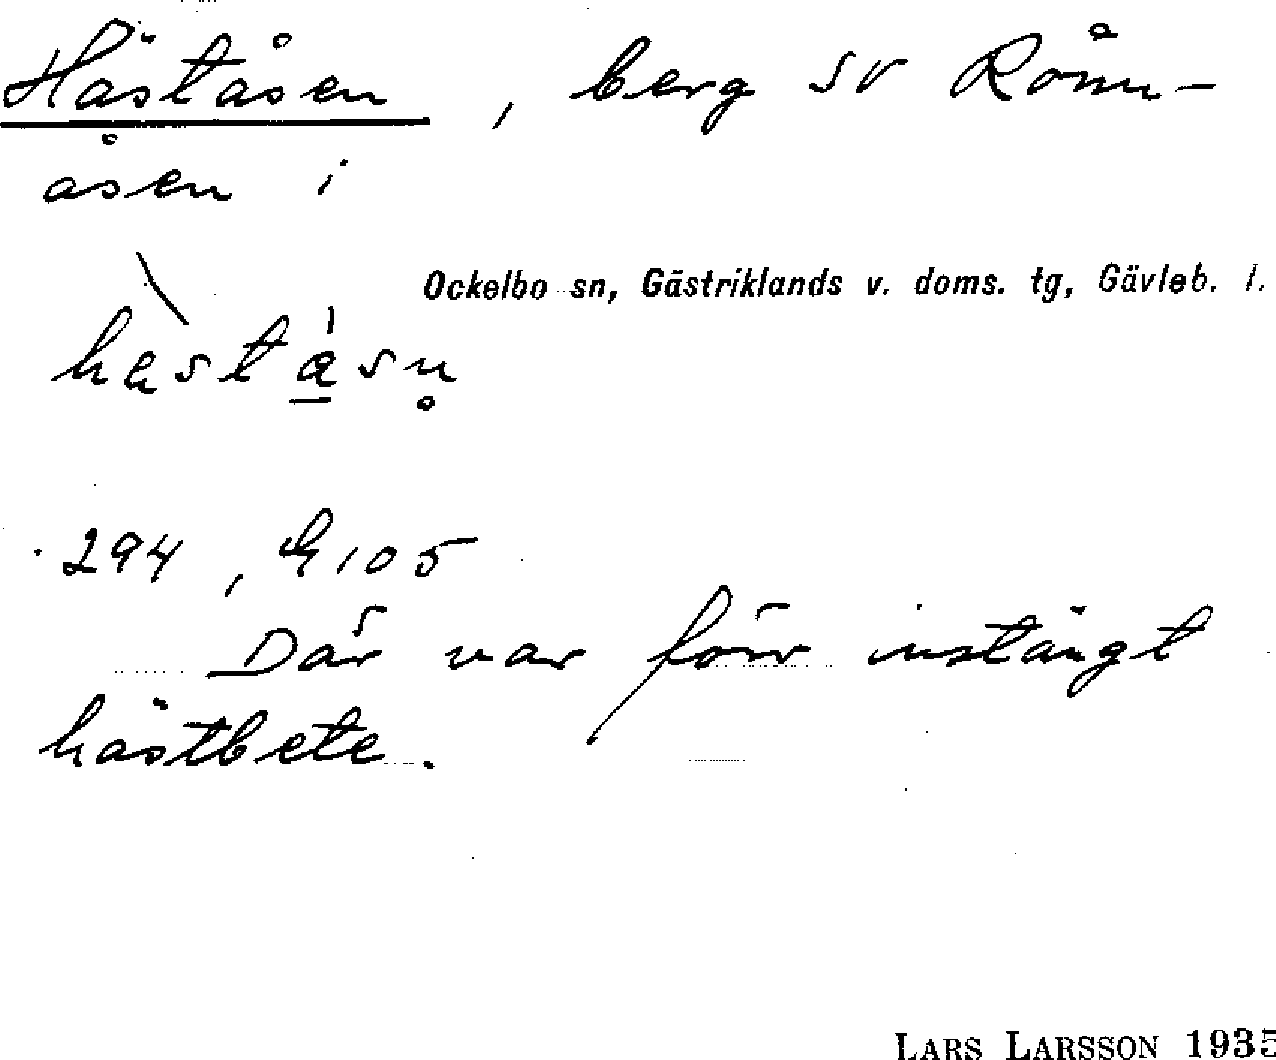 Häståsen, berg SV Rönn-
åsen i
Ockelbo sn, Gästriklands v. doms. tg, Gävleb. l.
häståsn̥
294, G105
Där var förr instängt
hästbete.
LARS LARSSON 1935